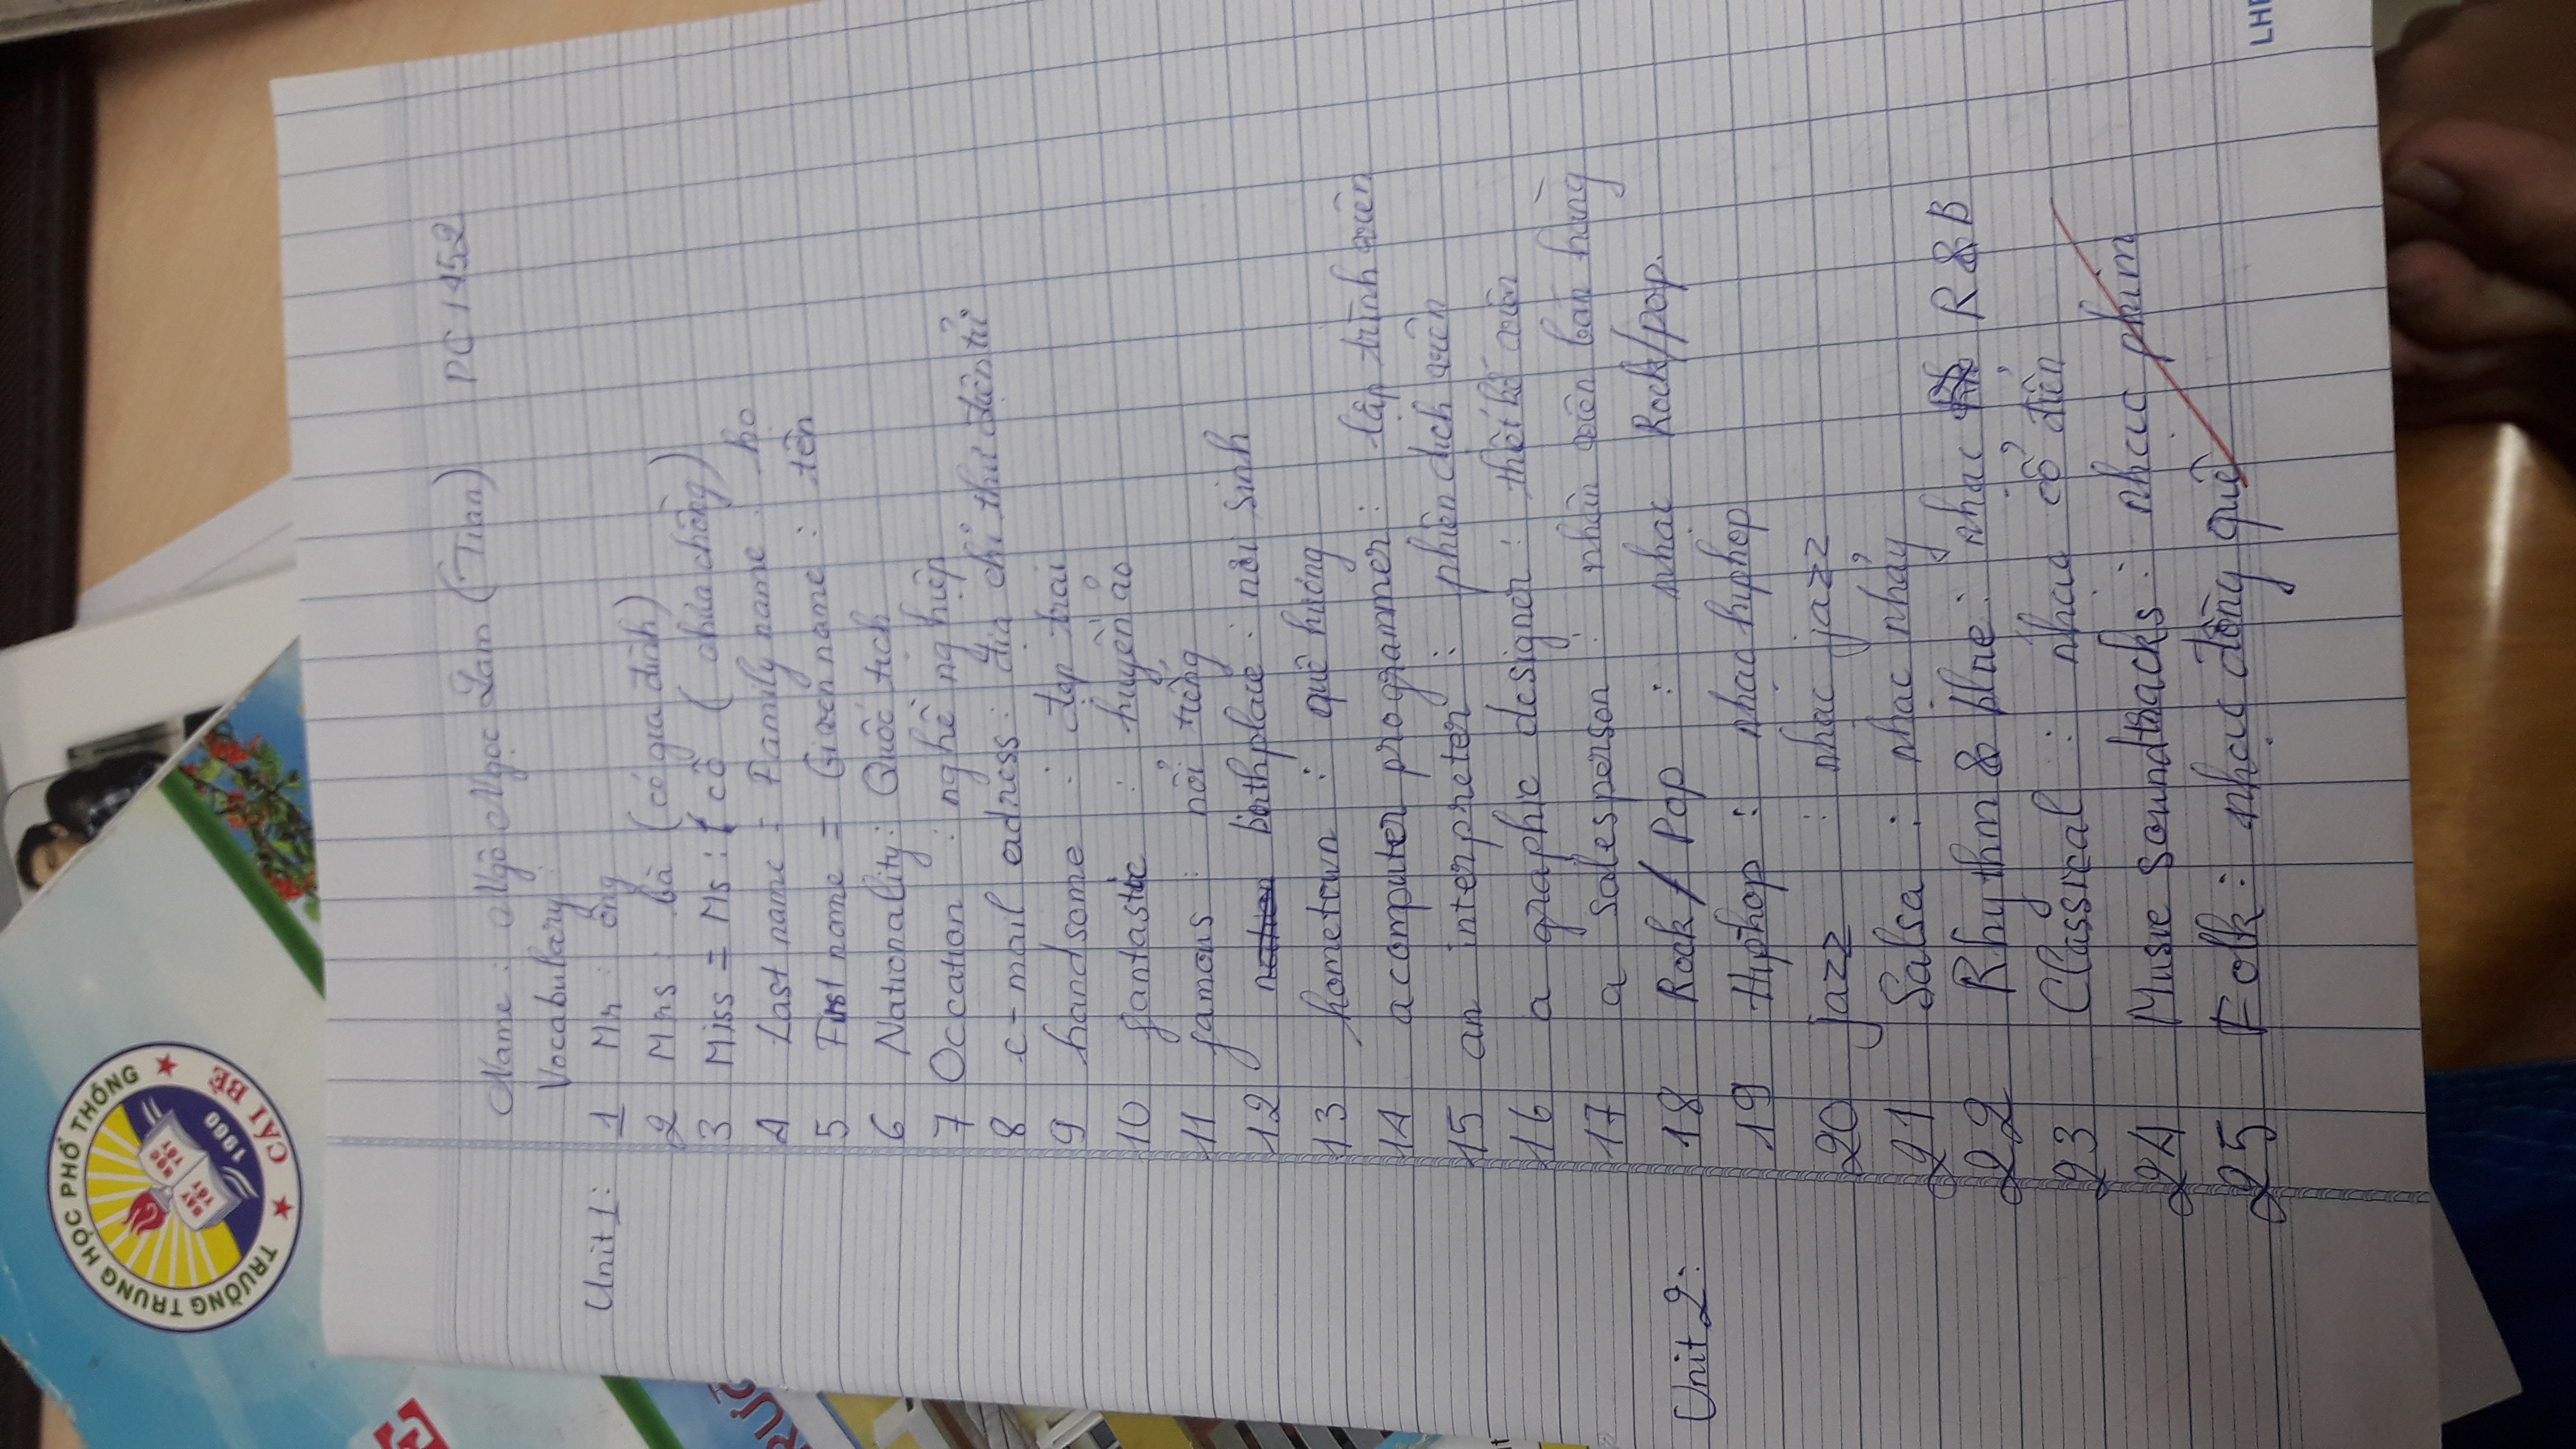 TRƯỜNG TRUNG HỌC PHỔ THÔNG
DẠY TỐT
HỌC TỐT
CÁI BÈ
Name : Ngô Ngọc Lam (Tian) PC1452
Vocabullary :
Unit 1: 1 Mr : ông
2 Mrs : bà (có gia đình)
3 Miss = Ms : cô ( chưa chồng)
4 Last name = Family name : họ
5 First name = Given name : tên
6 Nationality : Quốc tịch
7 Occation : nghề nghiệp
8 e-mail adress : địa chỉ thư điện tử
9 handsome : đẹp trai
10 fantastic : huyền ảo
11 famous : nổi tiếng
12 birthplace : nơi sinh
13 hometown : quê hương
14 a computer programmer : lập trình viên
15 an interpreter : phiên dịch viên
16 a graphic designer : thiết kế viên
17 a salesperson : nhân viên bán hàng
Unit 2: 18 Rock / Pop : nhạc Rock/pop.
19 Hiphop : nhạc hiphop
20 jazz : nhạc jazz
21 Salsa : nhạc nhảy
22 Rhythm & blue : nhạc R & B
23 Classical : nhạc cổ điển
24 Music soundtracks : nhạc phim
25 Folk : nhạc đồng quê